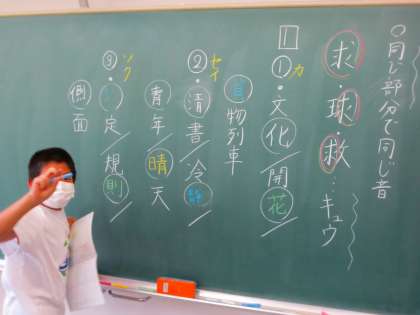 〇同じ部分で同じ音
求・球・救…キュウ
1
①カ・文化/開花/
貨物列車
②セイ・清書/冷静/
青年/晴天
③ソク・定/規則/
側面